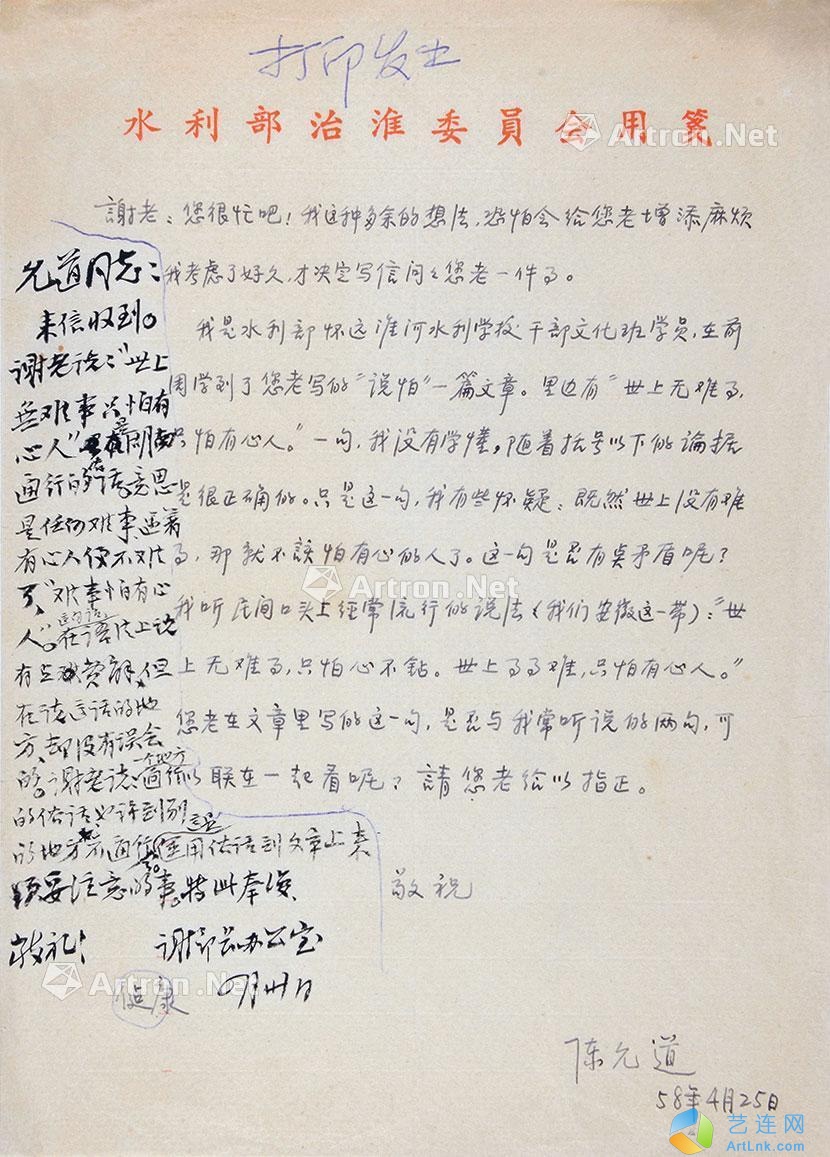 打印发出
水利部治淮委員会用箋
謝老：您很忙吧！我这种多余的想法，恐怕会给您老增添麻烦
我考虑了好久，才决定写信问问您老一件事。
我是水利部怀远淮河水利学校干部文化班学员，在前
周学到了您老写的“说怕”一篇文章。里边有“世上无难事，
只怕有心人。”一句，我没有学懂。随着括号以下的論据
是很正确的。只是这一句，我有些怀疑：既然世上没有难
事，那就不該怕有心的人了。这一句是否有矛盾呢？
我听民间口头上经常流行的说法（我们安徽这一带）：“世
上无难事，只怕心不钻。世上事事难，只怕有心人。”
您老在文章里写的这一句，是否与我常听说的两句，可
以联在一起看呢？請您老给以指正。
敬祝
健康
陈允道
58年4月25日
允道同志：
来信收到。
谢老说：“世上
無难事只怕有
心人”是
通行的俗话，意思
是任何难事遇着
有心人便不难
了，“难事怕有心
人”。这句话在语法上说
有点费解，但
在说这话的地
方，却没有误会
的。谢老说：一个地方通行
的俗话也许到别
的地方就不通行，这是运用俗语到文章上来
须要注意的事。特此奉复
敬礼！
谢部长办公室
四月卅日
Artron.Net
Artron.Net
Artron.Net
Artron.Net
艺连网
ArtLnk.com